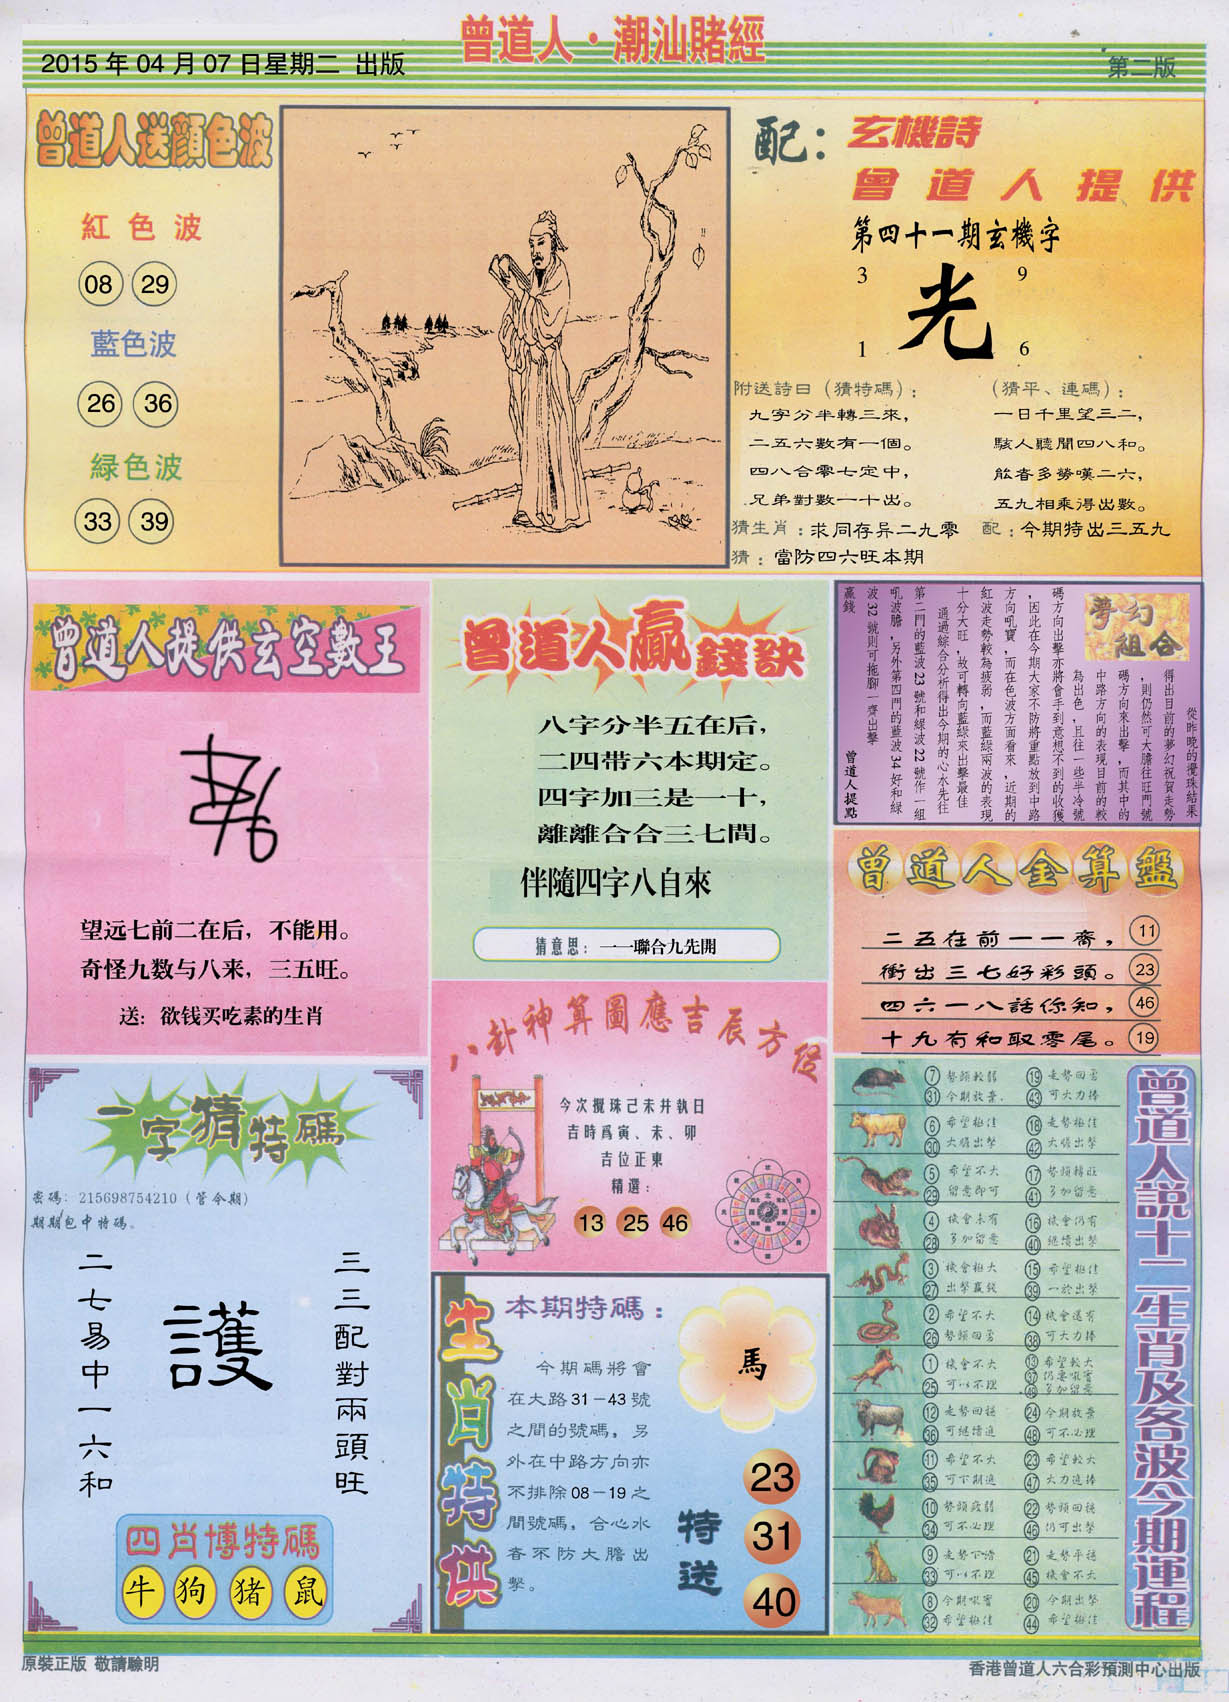 曾道人·潮汕賭經
2015年04月07日星期二 出版
第二版
曾道人送顏色波
紅色波
08 29
藍色波
26 36
緑色波
33 39
配：玄機詩
曾道人提供
第四十一期玄機字
3 9
光
1 6
附送詩曰（猜特碼）：
九字分半轉三來，
二五六數有一個。
四八合零七定中，
兄弟對數一十出。
（猜平、連碼）：
一日千里望三二，
駭人聽聞四八和。
能者多勞嘆二六，
五九相乘得出數。
猜生肖：求同存异二九零
配：今期特出三五九
猜：當防四六旺本期
曾道人提供玄空數王
望远七前二在后，不能用。
奇怪九数与八来，三五旺。
送：欲钱买吃素的生肖
曾道人贏錢訣
八字分半五在后，
二四带六本期定。
四字加三是一十，
離離合合三七間。
伴隨四字八自來
猜意思：一一聯合九先開
夢幻組合
從昨晚的攪珠結果
得出目前的夢幻祝賀走勢
，則仍然可大膽往旺門號
碼方向來出擊，而其中的
中路方向的表現目前的較
為出色，且往一些半冷號
碼方向出擊亦將會手到意想不到的收獲
，因此在今期大家不防將重點放到中路
方向吼寶，而在色波方面看來，近期的
紅波走勢較為疲弱，而藍綠兩波的表現
十分大旺，故可轉向藍綠來出擊最佳
通過綜合分析得出今期的心水先往
第二門的藍波23號和綠波22號作一組
吼波膽，另外第四門的藍波34好和綠
波32號則可拖腳一齊出擊
贏錢
曾道人提點
曾道人金算盤
二五在前一一齋， 11
衝出三七好彩頭。 23
四六一八話你知， 46
十九有和取零尾。 19
八卦神算圖應吉辰方位
今次攪珠己未井執日
吉時爲寅、未、卯
吉位正東
精選：
13 25 46
一字猜特碼
密碼：215698754210（管令期）
期期包中特碼。
二七易中一六和
護
三三配對兩頭旺
四肖博特碼
牛 狗 猪 鼠
生肖特供
本期特碼：
今期碼將會
在大路31－43號
之間的號碼，另
外在中路方向亦
不排除08－19之
間號碼，合心水
者不防大膽出
擊。
馬
特送
23
31
40
曾道人説十二生肖及各波今期運程
7 勢頭較弱 19 走勢回勇
31 今期放棄 43 可大力捧
6 希望極佳 18 走勢極佳
30 大膽出擊 42 大膽出擊
5 希望不大 17 勢頭轉旺
29 留意即可 41 多加留意
4 機會未有 16 機會仍有
28 多加留意 40 繼續出擊
3 機會極大 15 希望極佳
27 出擊贏錢 39 一於出擊
2 希望不大 14 機會還有
26 勢頭回勇 38 可大力捧
1 機會不大 13 希望較大
25 可以不理 37 仍要吸實
49 多加留意
12 走勢回穩 24 今期放棄
36 可繼續追 48 可不必理
11 希望不大 23 希望較大
35 可下期追 47 大力追捧
10 勢頭疲弱 22 勢頭回穩
34 可不必理 46 仍可出擊
9 走勢下滑 21 走勢平穩
33 可以不理 45 機會不大
8 今期吸實 20 今期出擊
32 希望極佳 44 希望極佳
原裝正版 敬請驗明
香港曾道人六合彩預測中心出版